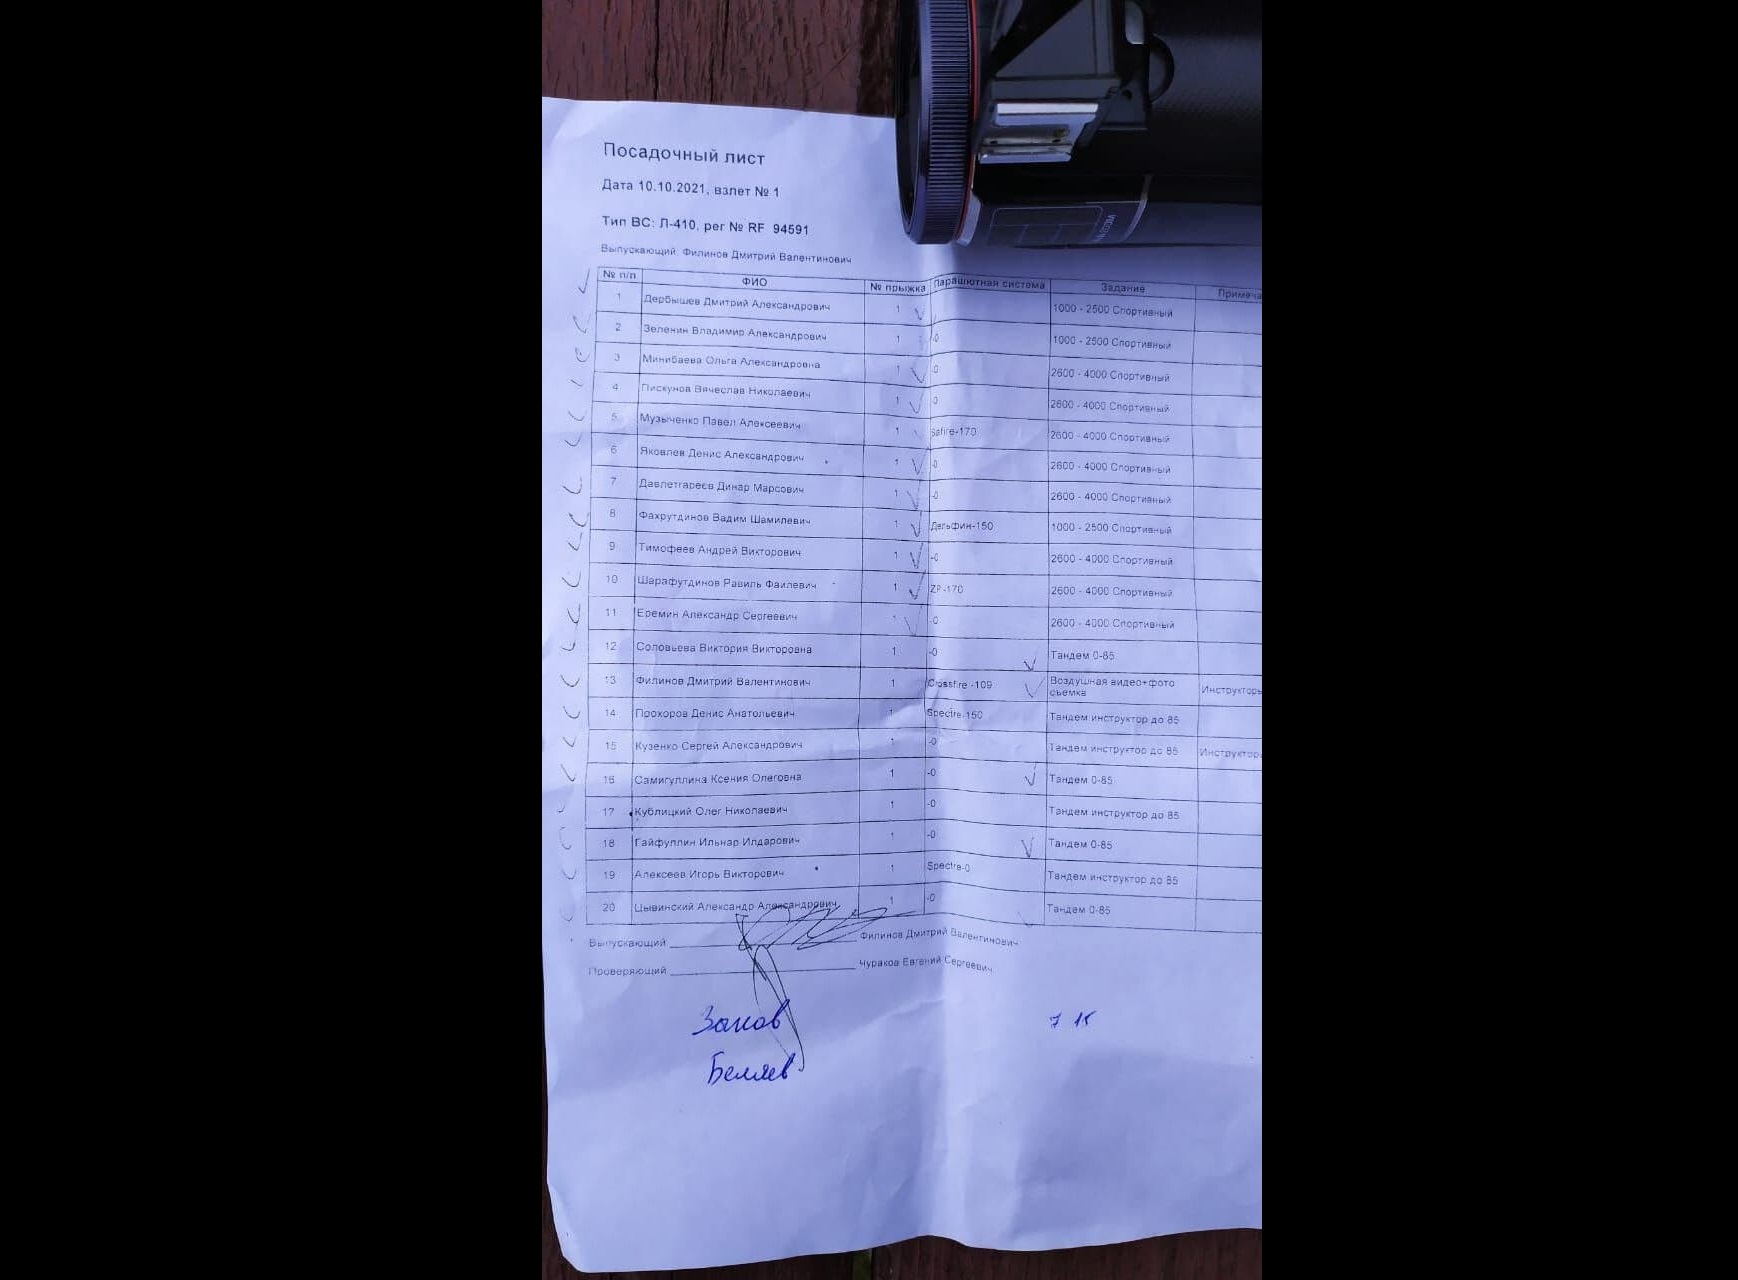 Посадочный лист
Дата 10.10.2021, взлет № 1
Тип ВС: Л-410, рег № RF 94591
Выпускающий: Филинов Дмитрий Валентинович
№ п/п ФИО № прыжка Парашютная система Задание Примеча
1 Дербышев Дмитрий Александрович 1 1000 - 2500 Спортивный
2 Зеленин Владимир Александрович 1 -0 1000 - 2500 Спортивный
3 Минибаева Ольга Александровна 1 -0 2600 - 4000 Спортивный
4 Пискунов Вячеслав Николаевич 1 -0 2600 - 4000 Спортивный
5 Музыченко Павел Алексеевич 1 Safire-170 2600 - 4000 Спортивный
6 Яковлев Денис Александрович 1 -0 2600 - 4000 Спортивный
7 Давлетгареев Динар Марсович 1 -0 2600 - 4000 Спортивный
8 Фахрутдинов Вадим Шамилевич 1 Дельфин-150 1000 - 2500 Спортивный
9 Тимофеев Андрей Викторович 1 -0 2600 - 4000 Спортивный
10 Шарафутдинов Равиль Фаилевич 1 ZP-170 2600 - 4000 Спортивный
11 Еремин Александр Сергеевич 1 -0 2600 - 4000 Спортивный
12 Соловьева Виктория Викторовна 1 -0 Тандем 0-85
13 Филинов Дмитрий Валентинович 1 Crossfire -109 Воздушная видео+фото съемка Инструкторы
14 Прохоров Денис Анатольевич 1 Spectre-150 Тандем инструктор до 85
15 Кузенко Сергей Александрович 1 -0 Тандем инструктор до 85 Инструкторы
16 Самигуллина Ксения Олеговна 1 -0 Тандем 0-85
17 Кублицкий Олег Николаевич 1 -0 Тандем инструктор до 85
18 Гайфуллин Ильнар Илдарович 1 -0 Тандем 0-85
19 Алексеев Игорь Викторович 1 Spectre-0 Тандем инструктор до 85
20 Цывинский Александр Александрович 1 -0 Тандем 0-85
Выпускающий Филинов Дмитрий Валентинович
Проверяющий Чураков Евгений Сергеевич
Беляев